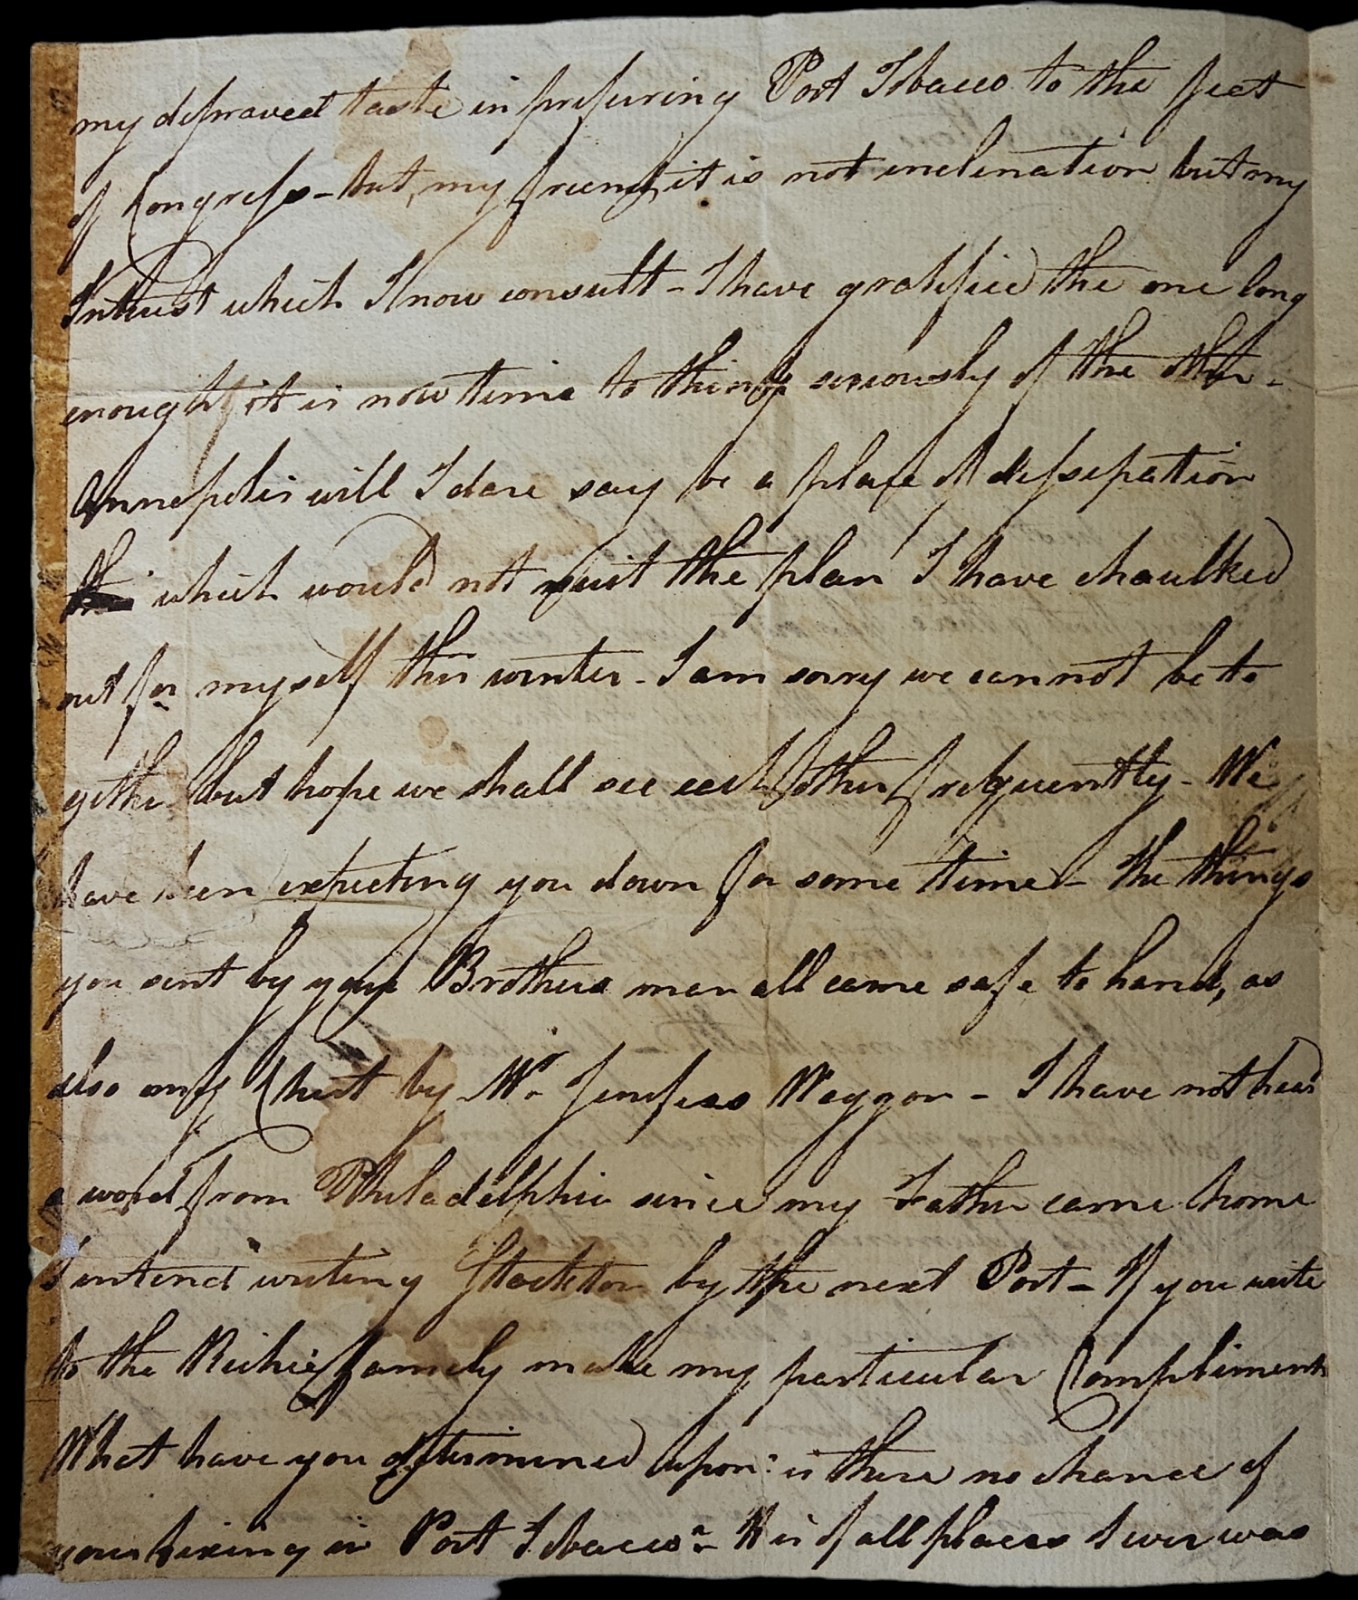 my depraved taste in prefering Port Tobacco to the seat
of Congress - but, my friend, it is not inclination but my
Interest which I now consult - I have gratified the one long
enough, it is now time to think seriously of the other -
Annapolis will I dare say be a place of dissipation
which would not suit the plan I have chaulked
out for myself this winter - I am sorry we cannot be to
gether, but hope we shall see each other frequently - We
have been expecting you down for some time - the things
you sent by your Brothers man all came safe to hand, as
also my Chest by Mr. Jenifers Waggon - I have not heard
a word from Philadelphia since my Father came home
I intend writing Stockton by the next Post - If you write
to the Richie family make my particular Compliments
What have you determined upon: is there no chance of
your fixing in Port Tobacco - It is of all places I ever was